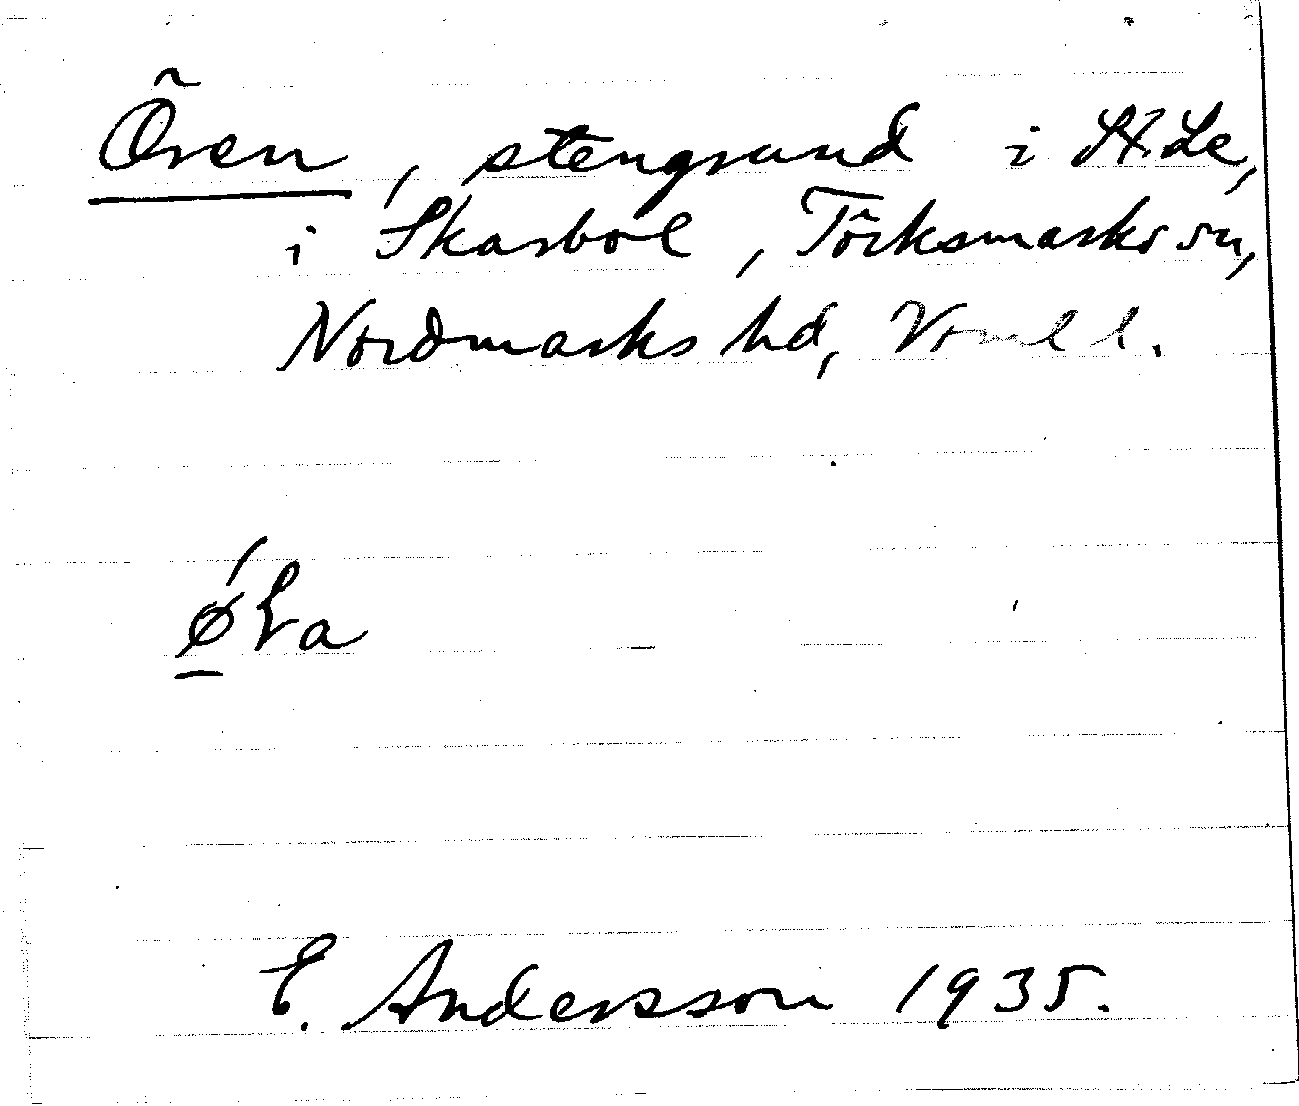 Ören, stengrund i St. Le,
i Skarbol, Töcksmarks sn,
Nordmarks hd, Vrml l.
E. Andersson 1935.